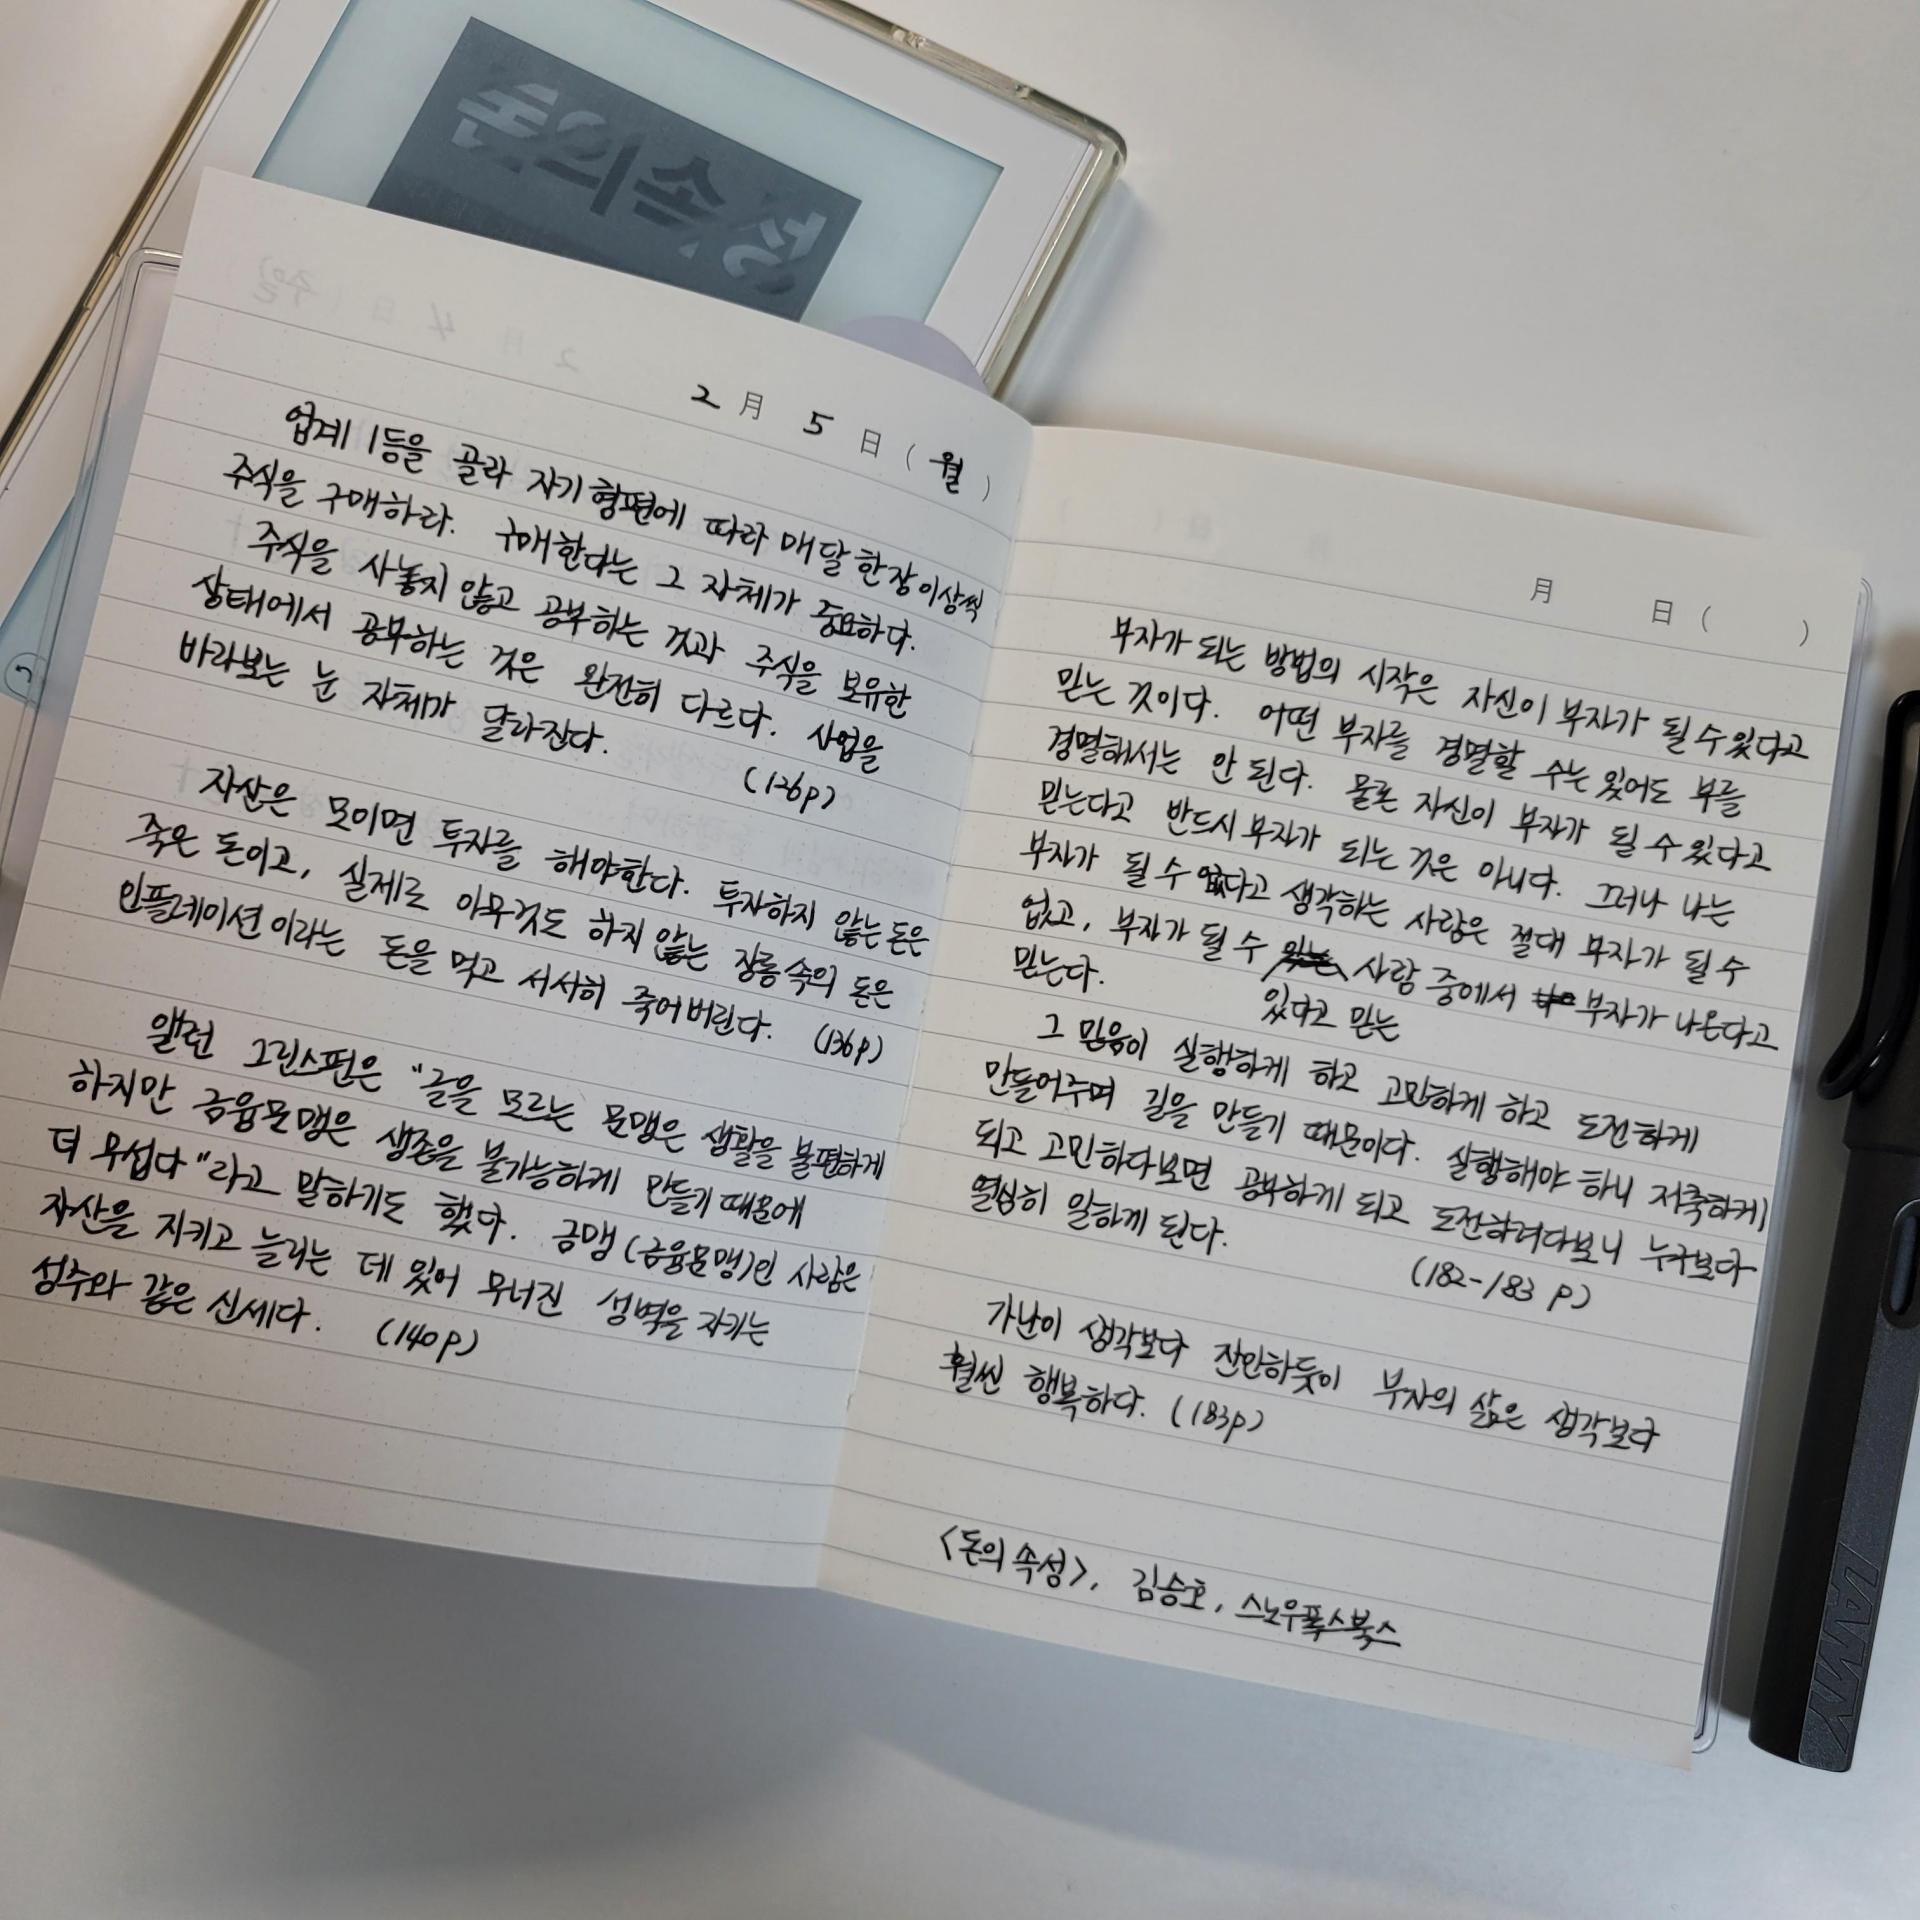 돈의 속성
2 月 5 日 (월)
업계 1등을 골라 자기 형편에 따라 매달 한 장 이상씩
주식을 구매하라. 구매한다는 그 자체가 중요하다.
주식을 사놓지 않고 공부하는 것과 주식을 보유한
상태에서 공부하는 것은 완전히 다르다. 사업을
바라보는 눈 자체가 달라진다.
(126p)
자산은 모이면 투자를 해야한다. 투자하지 않는 돈은
죽은 돈이고, 실제로 아무것도 하지 않는 장롱 속의 돈은
인플레이션이라는 돈을 먹고 서서히 죽어버린다. (136p)
앨런 그린스펀은 "글을 모르는 문맹은 생활을 불편하게
하지만 금융문맹은 생존을 불가능하게 만들기 때문에
더 무섭다"라고 말하기도 했다. 금맹(금융문맹)인 사람은
자산을 지키고 늘리는 데 있어 무너진 성벽을 지키는
성주와 같은 신세다. (140p)
月 日 ( )
부자가 되는 방법의 시작은 자신이 부자가 될 수 있다고
믿는 것이다. 어떤 부자를 경멸할 수는 있어도 부를
경멸해서는 안 된다. 물론 자신이 부자가 될 수 있다고
믿는다고 반드시 부자가 되는 것은 아니다. 그러나 나는
부자가 될 수 없다고 생각하는 사람은 절대 부자가 될 수
없고, 부자가 될 수 사람 중에서 부자가 나온다고
믿는다. 있다고 믿는
그 믿음이 실행하게 하고 고민하게 하고 도전하게
만들어주며 길을 만들기 때문이다. 실행해야 하니 저축하게
되고 고민하다보면 공부하게 되고 도전하려다보니 누구보다
열심히 일하게 된다.
(182-183 p)
가난이 생각보다 잔인하듯이 부자의 삶은 생각보다
훨씬 행복하다. (183p)
<돈의 속성>, 김승호, 스노우폭스북스
LAMY